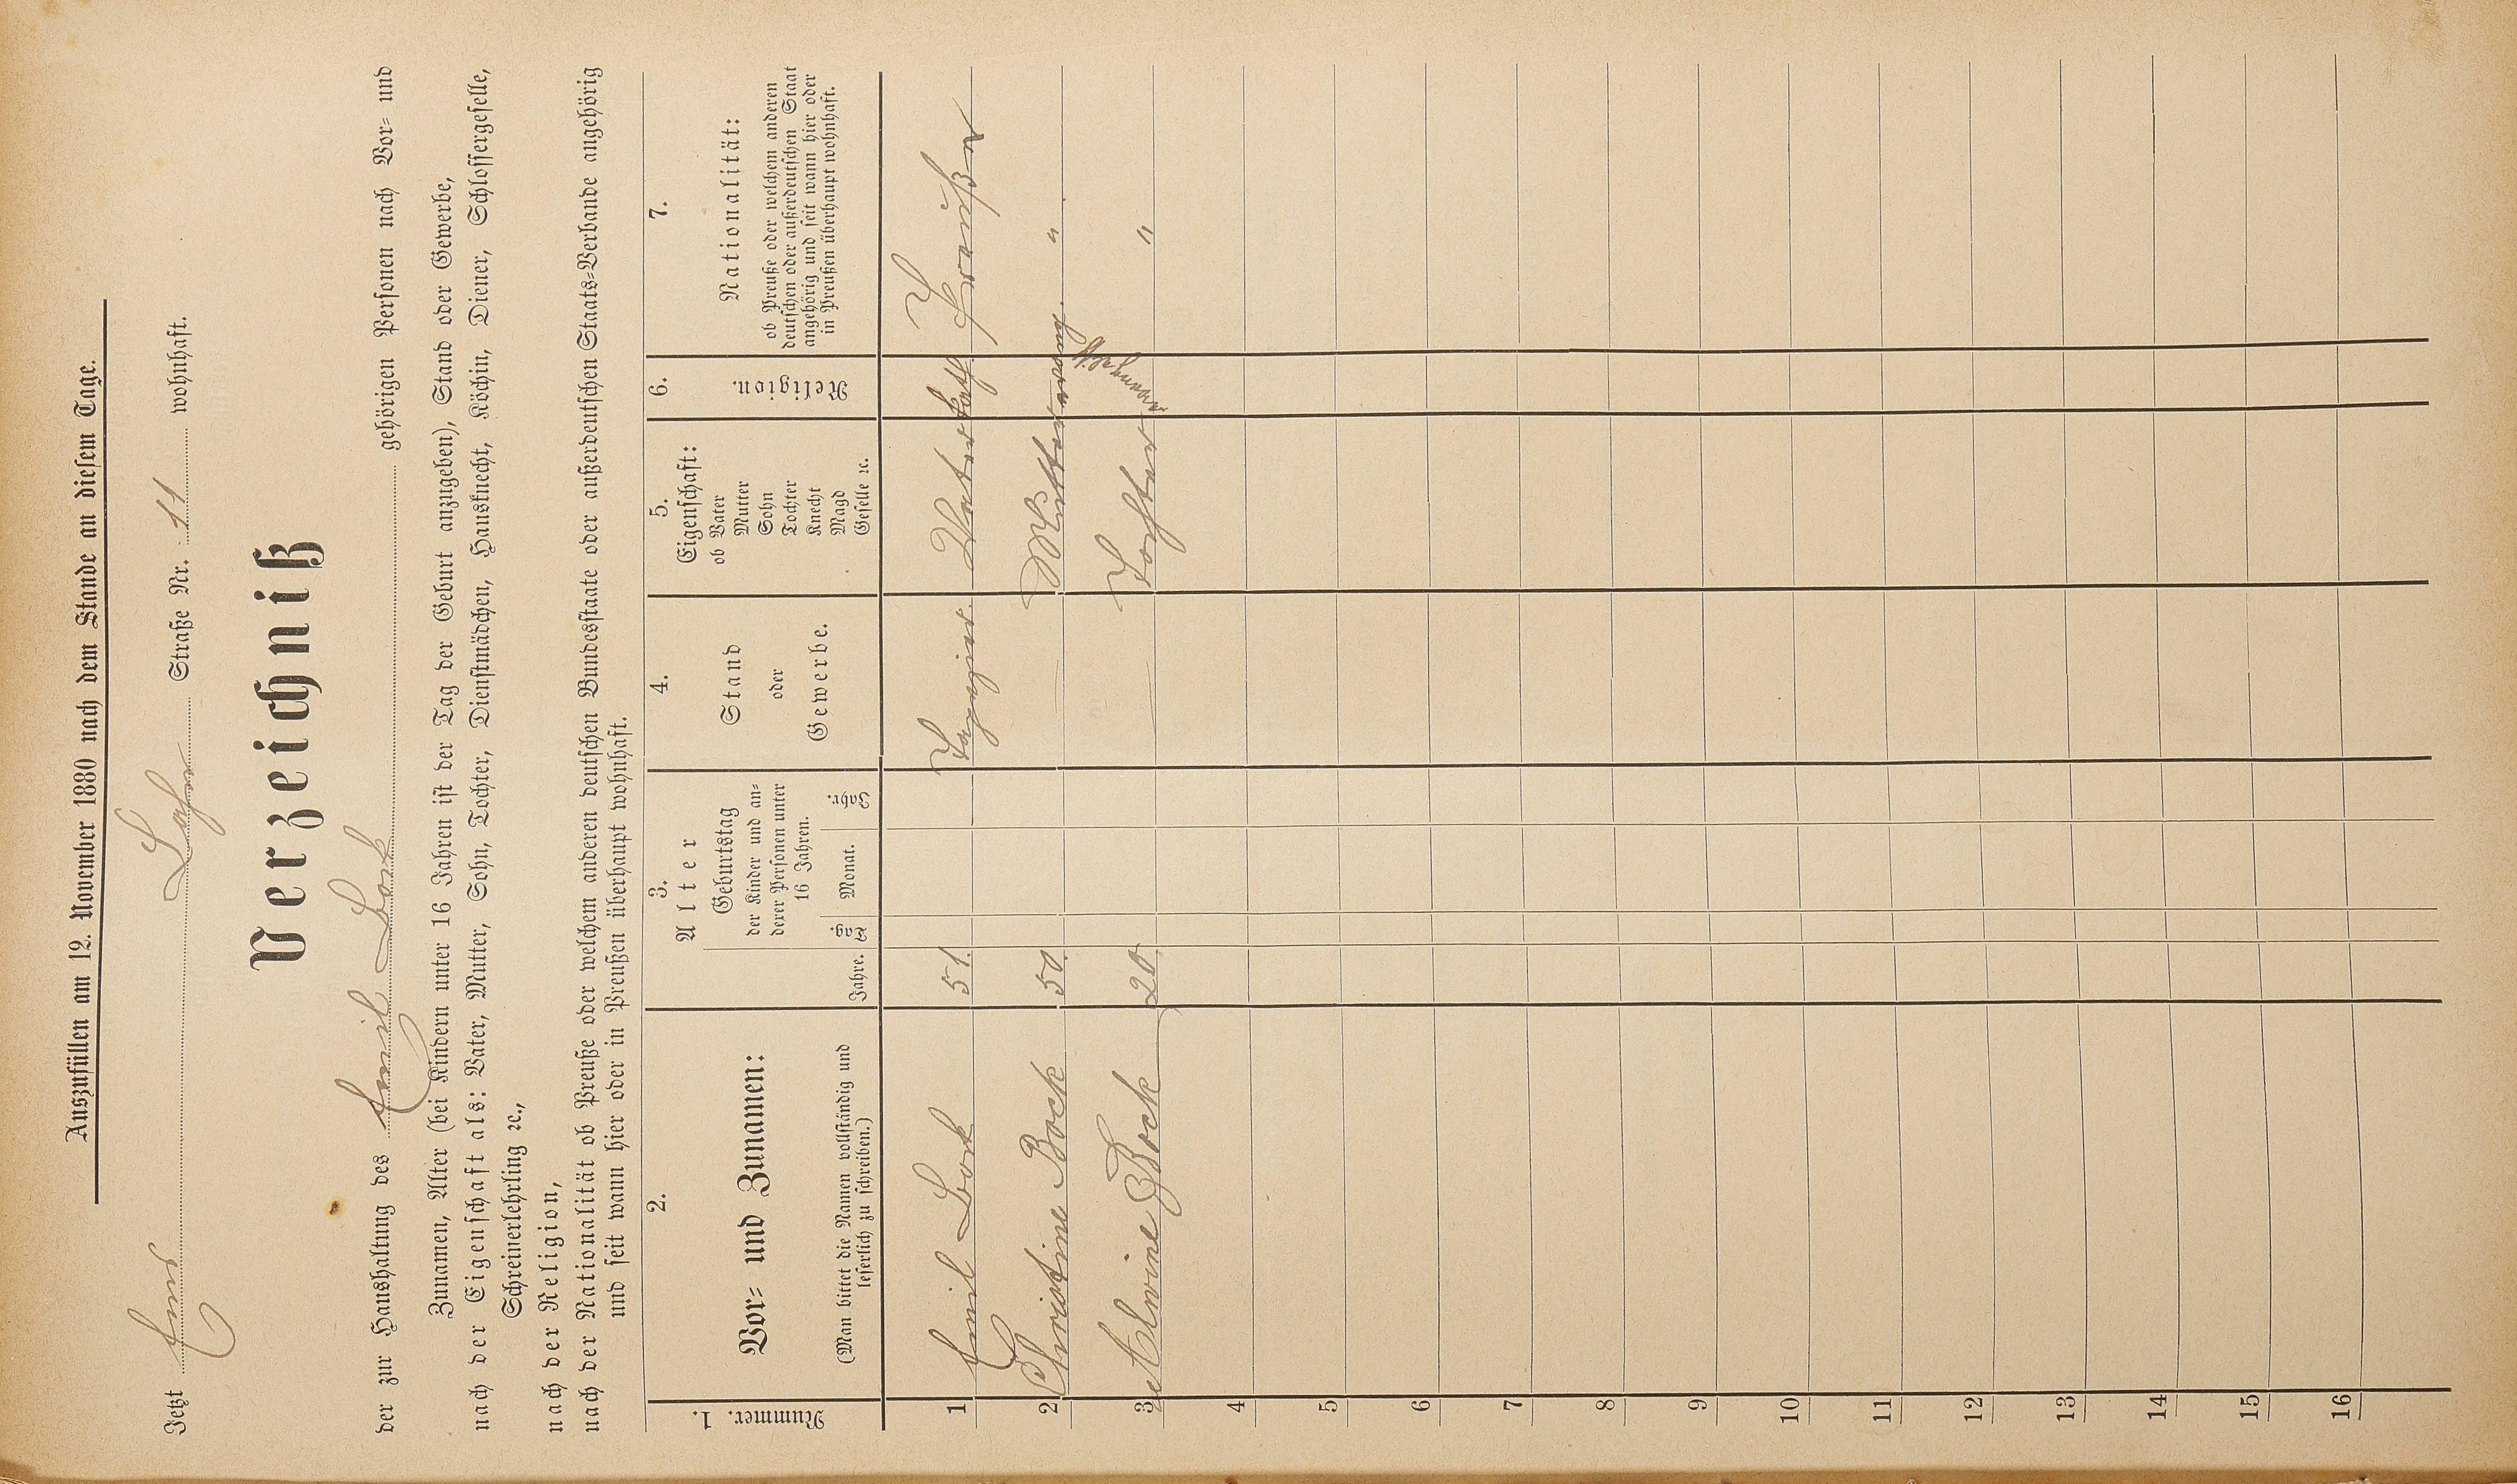 Auszufüllen am 12. November 1880 nach dem Stande an diesem Tage.
Jetzt Ems Lahn Straße Nr. 11 wohnhaft.
Verzeichniß
der zur Haushaltung des Emil Bock gehörigen Personen nach Vor- und
Zunamen, Alter (bei Kindern unter 16 Jahren ist der Tag der Geburt anzugeben), Stand oder Gewerbe,
nach der Eigenschaft als: Vater, Mutter, Sohn, Tochter, Dienstmädchen, Hausknecht, Köchin, Diener, Schlossergeselle,
Schreinerlehrling ꝛc.,
nach der Religion,
nach der Nationalität ob Preuße oder welchem anderen deutschen Bundesstaate oder außerdeutschen Staats-Verbande angehörig
und seit wann hier oder in Preußen überhaupt wohnhaft.
1. Nummer.
2.
Vor- und Zunamen:
(Man bittet die Namen vollständig und
leserlich zu schreiben.)
3.
Alter
Jahre.
Geburtstag
der Kinder und an-
derer Personen unter
16 Jahren.
Tag. Monat. Jahr.
4.
Stand
oder
Gewerbe.
5.
Eigenschaft:
ob Vater
Mutter
Sohn
Tochter
Knecht
Magd
Geselle ꝛc.
6.
Religion.
7.
Nationalität:
ob Preuße oder welchem anderen
deutschen oder außerdeutschen Staat
angehörig und seit wann hier oder
in Preußen überhaupt wohnhaft.
1 Emil Bock 51. Vater kath Preuße
2 Christine Bock 50. Mutter evang. "
3 Alwine Bock 20. Tochter "
4
5
6
7
8
9
10
11
12
13
14
15
16